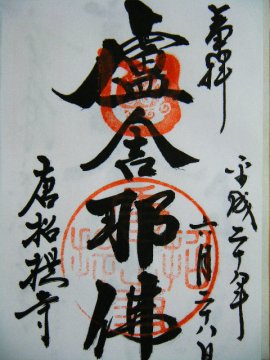 奉拝
平成二十年
六月二十八日
盧舎那佛
唐招提寺